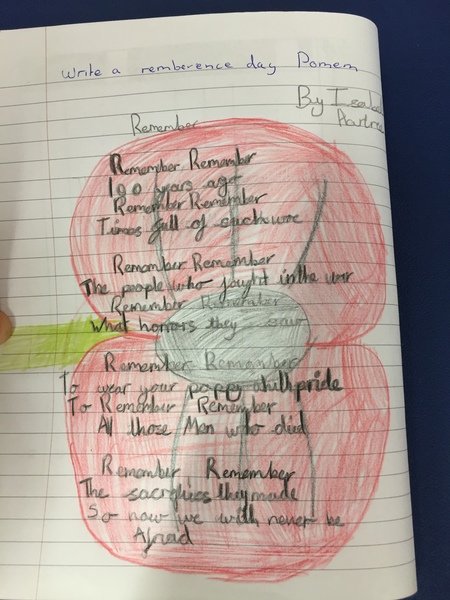 Write a remberence day Pomem
By Isabe
Remember
Remember Remember
100 years ago
Remember Remember
Times full of
Remember Remember
The people who fought in the war
Remember Remember
What honors they saw
Remember Remember
To wear your poppy whith pride
To Remember Remember
All those Men who died
Remember Remember
The they made
So now we will never be
Afriad